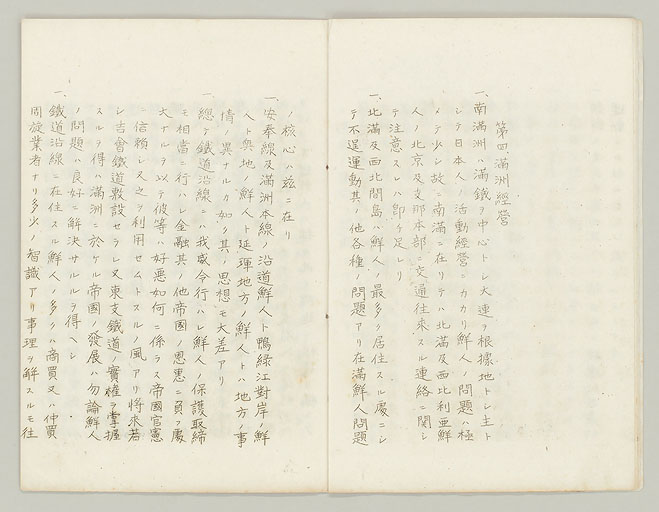 第四滿洲經營
一、南滿洲ハ滿鐵ヲ中心トシ大連ヲ根據地トシ主ト
シテ日本人ノ活動經營ニカカリ鮮人ノ問題ハ極
メテ少シ故ニ南滿ニ在リテハ北滿及西比利亜鮮
人ノ北京及支那本部ニ交通往來スル連絡ニ関シ
テ注意スレハ即チ足レリ
一、北滿及西北間島ハ鮮人ノ最多ク居住スル處ニシ
テ不逞運動其ノ他各種ノ問題アリ在滿鮮人問題
ノ核心ハ茲ニ在リ
一、安奉線及滿洲本線ノ沿道鮮人ト鴨緑江對岸ノ鮮
人ト奥地ノ鮮人ト延琿地方ノ鮮人トハ地方ノ事
情ノ異ナルカ如ク其ノ思想モ大差アリ
一、總テ鐵道沿線ニハ我威令行ハレ鮮人ノ保護取締
モ相當ニ行ハレ金融其ノ他帝國ノ恩惠ニ負フ處
大ナルヲ以テ彼等ハ好悪如何ニ係ラス帝國官憲
ニ信頼シ又之ヲ利用セムトスルノ風アリ將來若
シ吉會鐵道敷設セラレ又東支鐵道ノ實權ヲ掌握
スルヲ得ハ滿洲ニ於ケル帝國ノ發展ハ勿論鮮人
ノ問題ハ良好ニ解決サルルヲ得ヘシ
一、鐵道沿線ニ在住スル鮮人ノ多クハ商買又ハ仲買
周旋業者ナリ多少ノ智識アリ事理ヲ解スルモ往